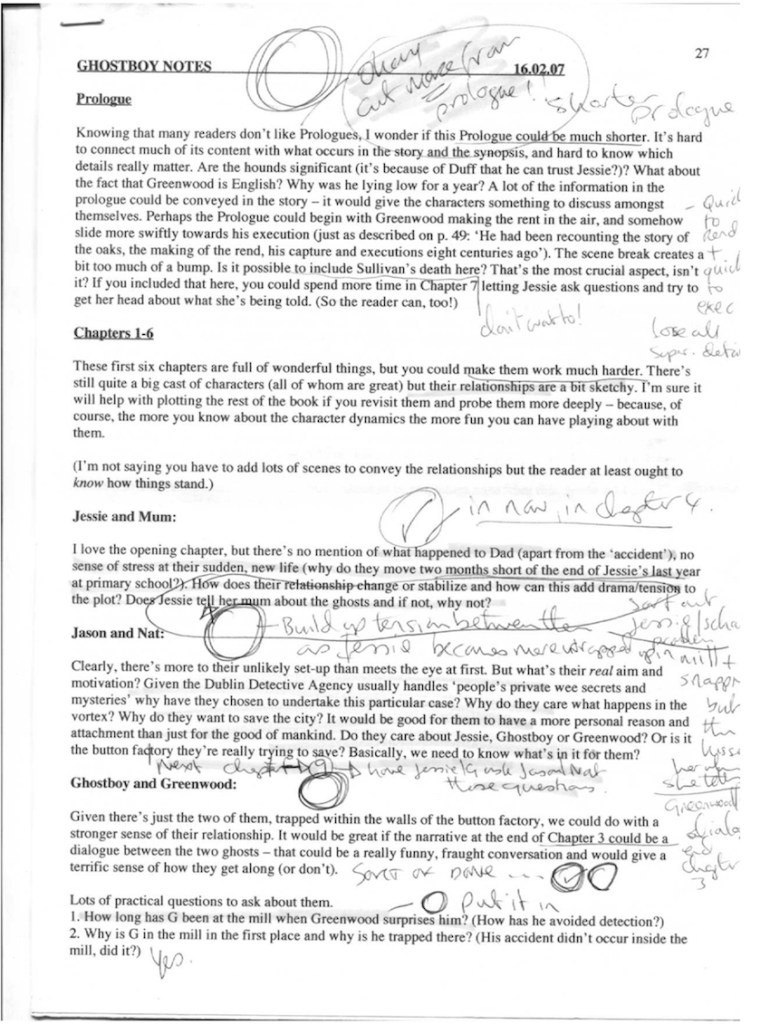 27
okay
cut more from
prologue!!
GHOSTBOY NOTES 16.02.07
shorter prologue
Prologue
Knowing that many readers don't like Prologues, I wonder if this Prologue could be much shorter. It's hard
to connect much of its content with what occurs in the story and the synopsis, and hard to know which
details really matter. Are the hounds significant (it's because of Duff that he can trust Jessie?)? What about
the fact that Greenwood is English? Why was he lying low for a year? A lot of the information in the
prologue could be conveyed in the story – it would give the characters something to discuss amongst
themselves. Perhaps the Prologue could begin with Greenwood making the rent in the air, and somehow
slide more swiftly towards his execution (just as described on p. 49: 'He had been recounting the story of
the oaks, the making of the rend, his capture and executions eight centuries ago'). The scene break creates a
bit too much of a bump. Is it possible to include Sullivan's death here? That's the most crucial aspect, isn't
it? If you included that here, you could spend more time in Chapter 7 letting Jessie ask questions and try to
get her head about what she's being told. (So the reader can, too!)
to
rend
+
to
exec
lose all
don't want to!
Chapters 1-6
These first six chapters are full of wonderful things, but you could make them work much harder. There's
still quite a big cast of characters (all of whom are great) but their relationships are a bit sketchy. I'm sure it
will help with plotting the rest of the book if you revisit them and probe them more deeply – because, of
course, the more you know about the character dynamics the more fun you can have playing about with
them.
(I'm not saying you have to add lots of scenes to convey the relationships but the reader at least ought to
know how things stand.)
in now, in chapter 4.
Jessie and Mum:
I love the opening chapter, but there's no mention of what happened to Dad (apart from the 'accident'), no
sense of stress at their sudden, new life (why do they move two months short of the end of Jessie's last year
at primary school?). How does their relationship change or stabilize and how can this add drama/tension to
the plot? Does Jessie tell her mum about the ghosts and if not, why not?
sort out
Build up tension between them
as Jessie becomes more wrapped up in mill +
Jason and Nat:
Clearly, there's more to their unlikely set-up than meets the eye at first. But what's their real aim and
motivation? Given the Dublin Detective Agency usually handles 'people's private wee secrets and
mysteries' why have they chosen to undertake this particular case? Why do they care what happens in the
vortex? Why do they want to save the city? It would be good for them to have a more personal reason and
attachment than just for the good of mankind. Do they care about Jessie, Ghostboy or Greenwood? Or is it
the button factory they're really trying to save? Basically, we need to know what's in it for them?
Next chapter (9) → have Jessie/G ask Jason/Nat
these questions.
Ghostboy and Greenwood:
Given there's just the two of them, trapped within the walls of the button factory, we could do with a
stronger sense of their relationship. It would be great if the narrative at the end of Chapter 3 could be a
dialogue between the two ghosts – that could be a really funny, fraught conversation and would give a
terrific sense of how they get along (or don't).
Sort of done ...
Greenwood
end
chapter
3
Lots of practical questions to ask about them.
– put it in
1. How long has G been at the mill when Greenwood surprises him? (How has he avoided detection?)
2. Why is G in the mill in the first place and why is he trapped there? (His accident didn't occur inside the
mill, did it?)
Yes.